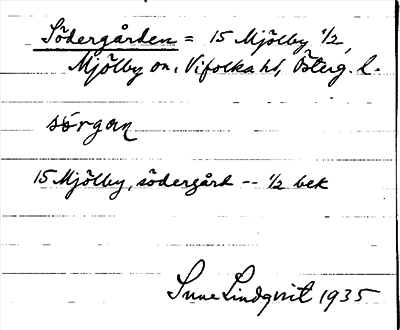 Södergården = 15 Mjölby 1/2,
Mjölby sn, Vifolka hd, Österg. l.
sörgan
15 Mjölby, södergård -- 1/2 bek
Sune Lindqvist 1935